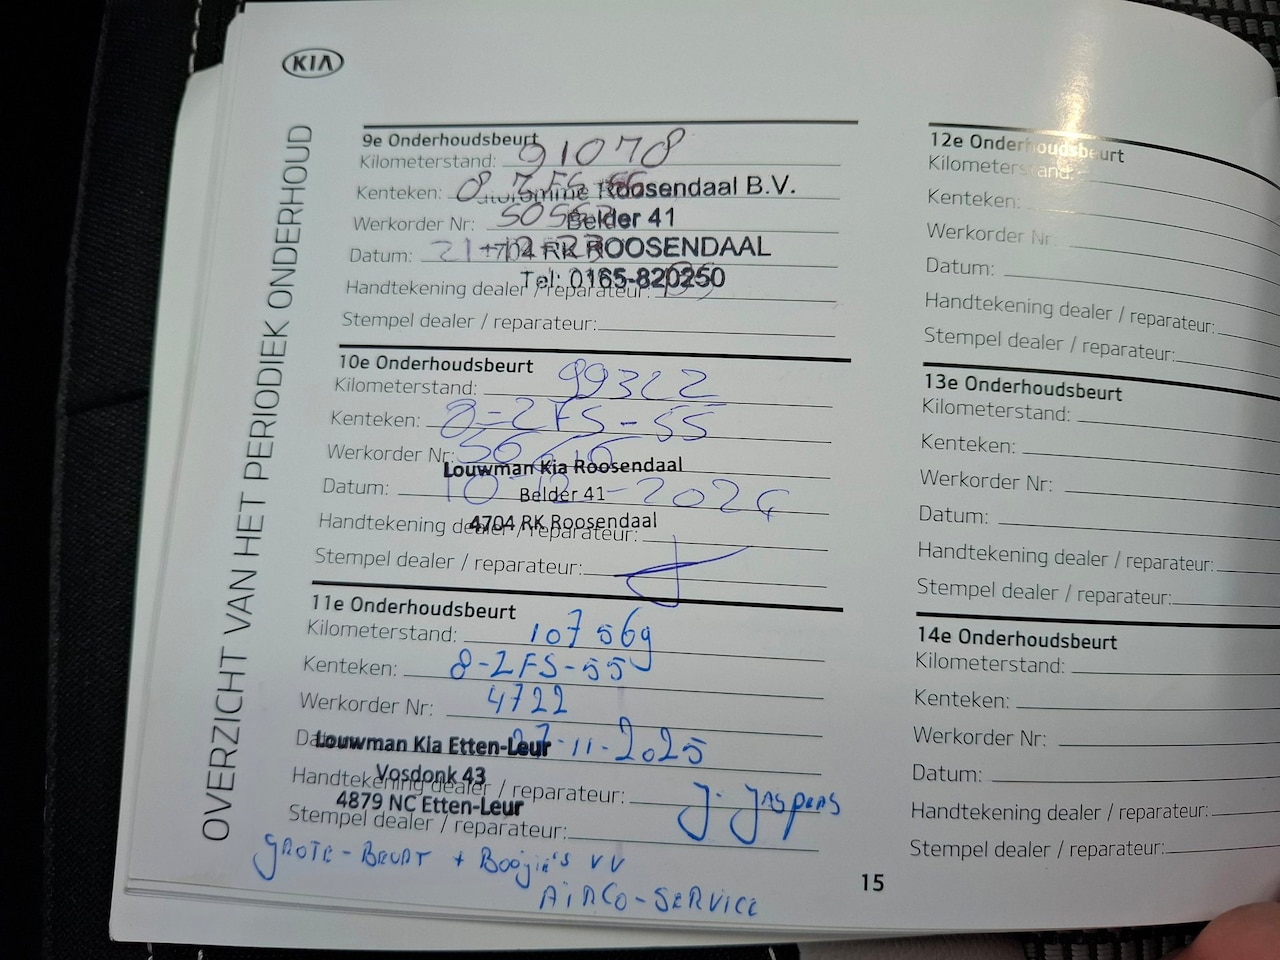 KIA
OVERZICHT VAN HET PERIODIEK ONDERHOUD
9e Onderhoudsbeurt
Kilometerstand: 91078
Kenteken: 8
Roosendaal B.V.
Werkorder Nr:
Belder 41
Datum: 21
4704 RK ROOSENDAAL
Tel: 0165-820250
Handtekening dealer / reparateur:
Stempel dealer / reparateur:
10e Onderhoudsbeurt
Kilometerstand: 99322
Kenteken: 8-ZFS-55
Werkorder Nr:
Louwman Kia Roosendaal
Datum: 10-12-2024
Belder 41
4704 RK Roosendaal
Handtekening dealer / reparateur:
Stempel dealer / reparateur:
11e Onderhoudsbeurt
Kilometerstand: 107569
Kenteken: 8-ZFS-55
Werkorder Nr: 4722
Datum: 27-11-2025
Louwman Kia Etten-Leur
Vosdonk 43
Handtekening dealer / reparateur: J. Jaspers
4879 NC Etten-Leur
Stempel dealer / reparateur:
GROTE-BEURT + Boogie's VV
AIRCO-SERVICE
12e Onderhoudsbeurt
Kilometerstand:
Kenteken:
Werkorder Nr:
Datum:
Handtekening dealer / reparateur:
Stempel dealer / reparateur:
13e Onderhoudsbeurt
Kilometerstand:
Kenteken:
Werkorder Nr:
Datum:
Handtekening dealer / reparateur:
Stempel dealer / reparateur:
14e Onderhoudsbeurt
Kilometerstand:
Kenteken:
Werkorder Nr:
Datum:
Handtekening dealer / reparateur:
Stempel dealer / reparateur:
15